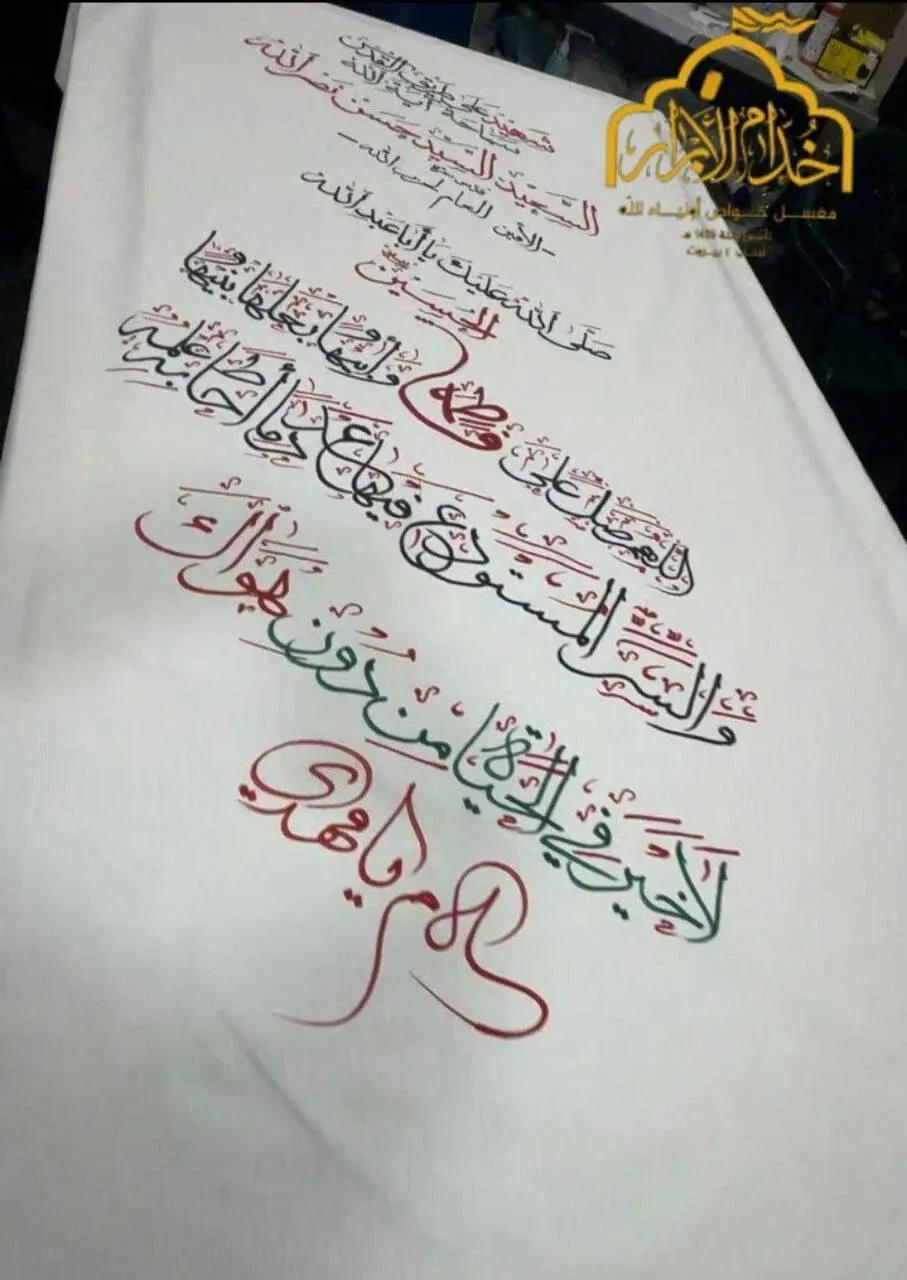 شهيد على طريق القدس
سماحة آية الله
السعيد السيد حسن نصر الله
قدس سره
- الأمين العام لحزب الله -
صلى الله عليك يا أبا عبد الله
الحسين
اللهم صل على فاطمة وأبيها وبعلها وبنيها
والسر المستودع فيها عدد ما أحاط به علمك
لا خير في الحياة من دون هواك
يا مهدي
خدام الأبرار
مغسل خواص أولياء الله